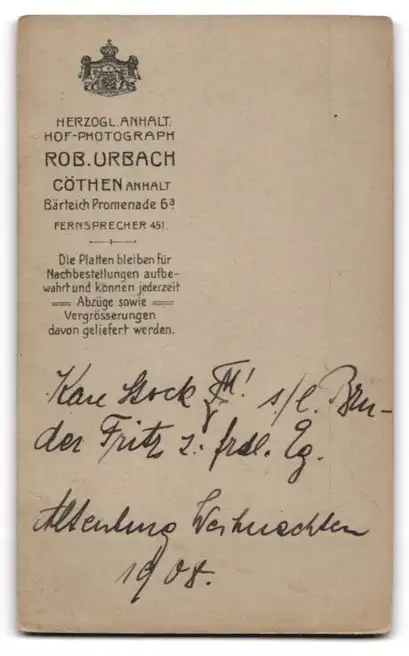 HERZOGL. ANHALT.
HOF-PHOTOGRAPH
ROB. URBACH
CÖTHEN ANHALT
Bärteich Promenade 6a
FERNSPRECHER 451.
Die Platten bleiben für
Nachbestellungen aufbe-
wahrt und können jederzeit
Abzüge sowie
Vergrösserungen
davon geliefert werden.
Stock s/l. Bru-
der Fritz z. frdl. Eg.
Altenburg Weihnachten
1908.